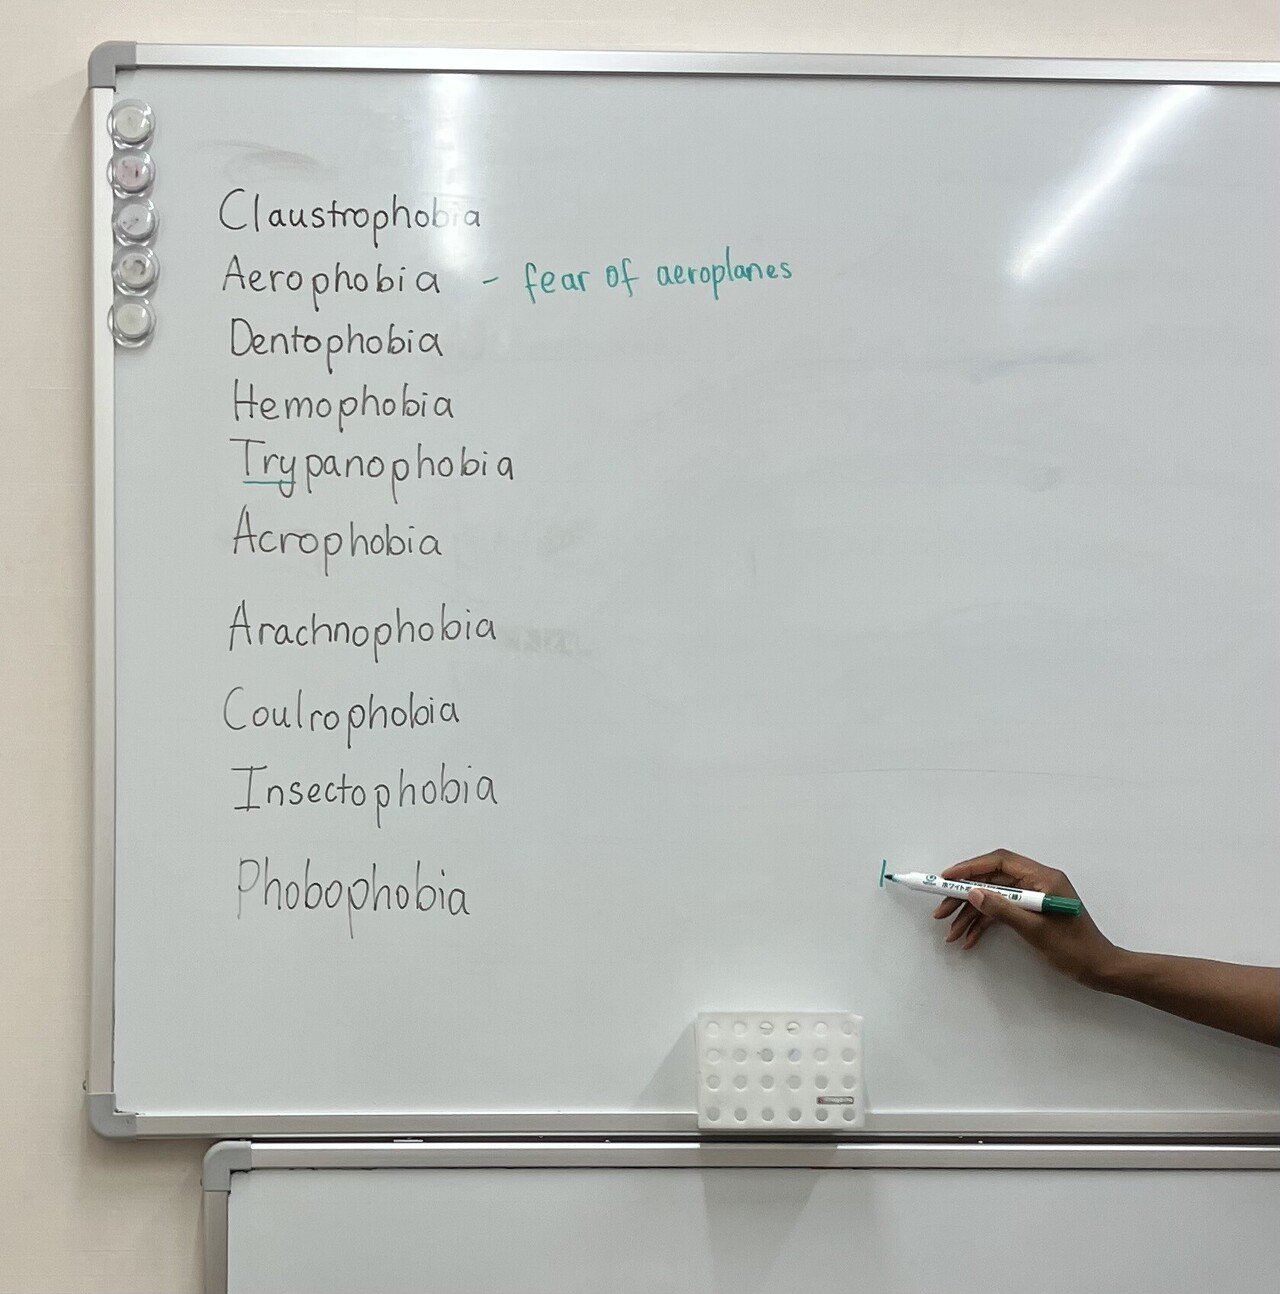 Claustrophobia
Aerophobia - fear of aeroplanes
Dentophobia
Hemophobia
Trypanophobia
Acrophobia
Arachnophobia
Coulrophobia
Insectophobia
Phobophobia